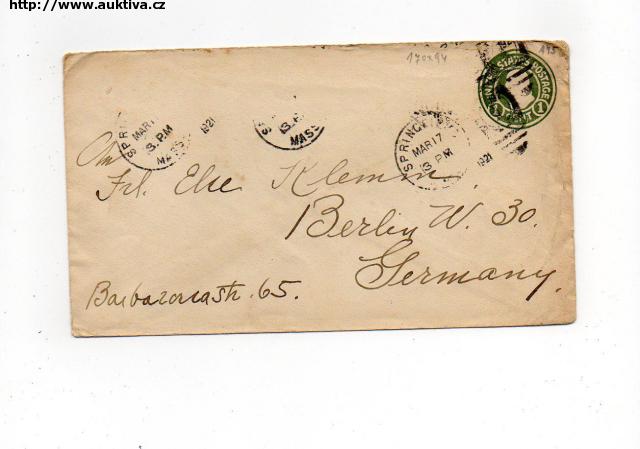 http://www.auktiva.cz
170x94
145
STATES POSTAGE
1 1
SPRING
MAR 17
3 PM
1921
MAR 17
3 PM
MASS
1921
3 P
MASS
An
Frl. Else Klemm,
Berlin W. 30.
Germany.
Barbarossastr. 65.